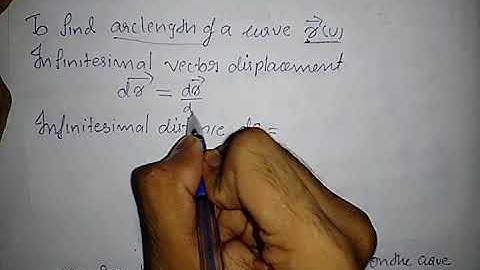 To find arclength of a wave r⃗(u)
Infinitesimal vector displacement
dr⃗ = dr⃗/d
Infinitesimal distance ds =
on the wave